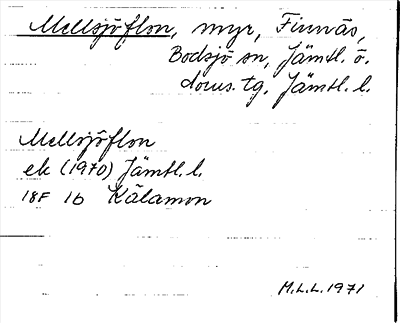 Mellsjöflon, myr, Finnäs,
Bodsjö sn, Jämtl. ö.
doms. tg, Jämtl. l.
Mellsjöflon
ek (1970) Jämtl. l.
18F 1b Kälamon
M.L.L. 1971